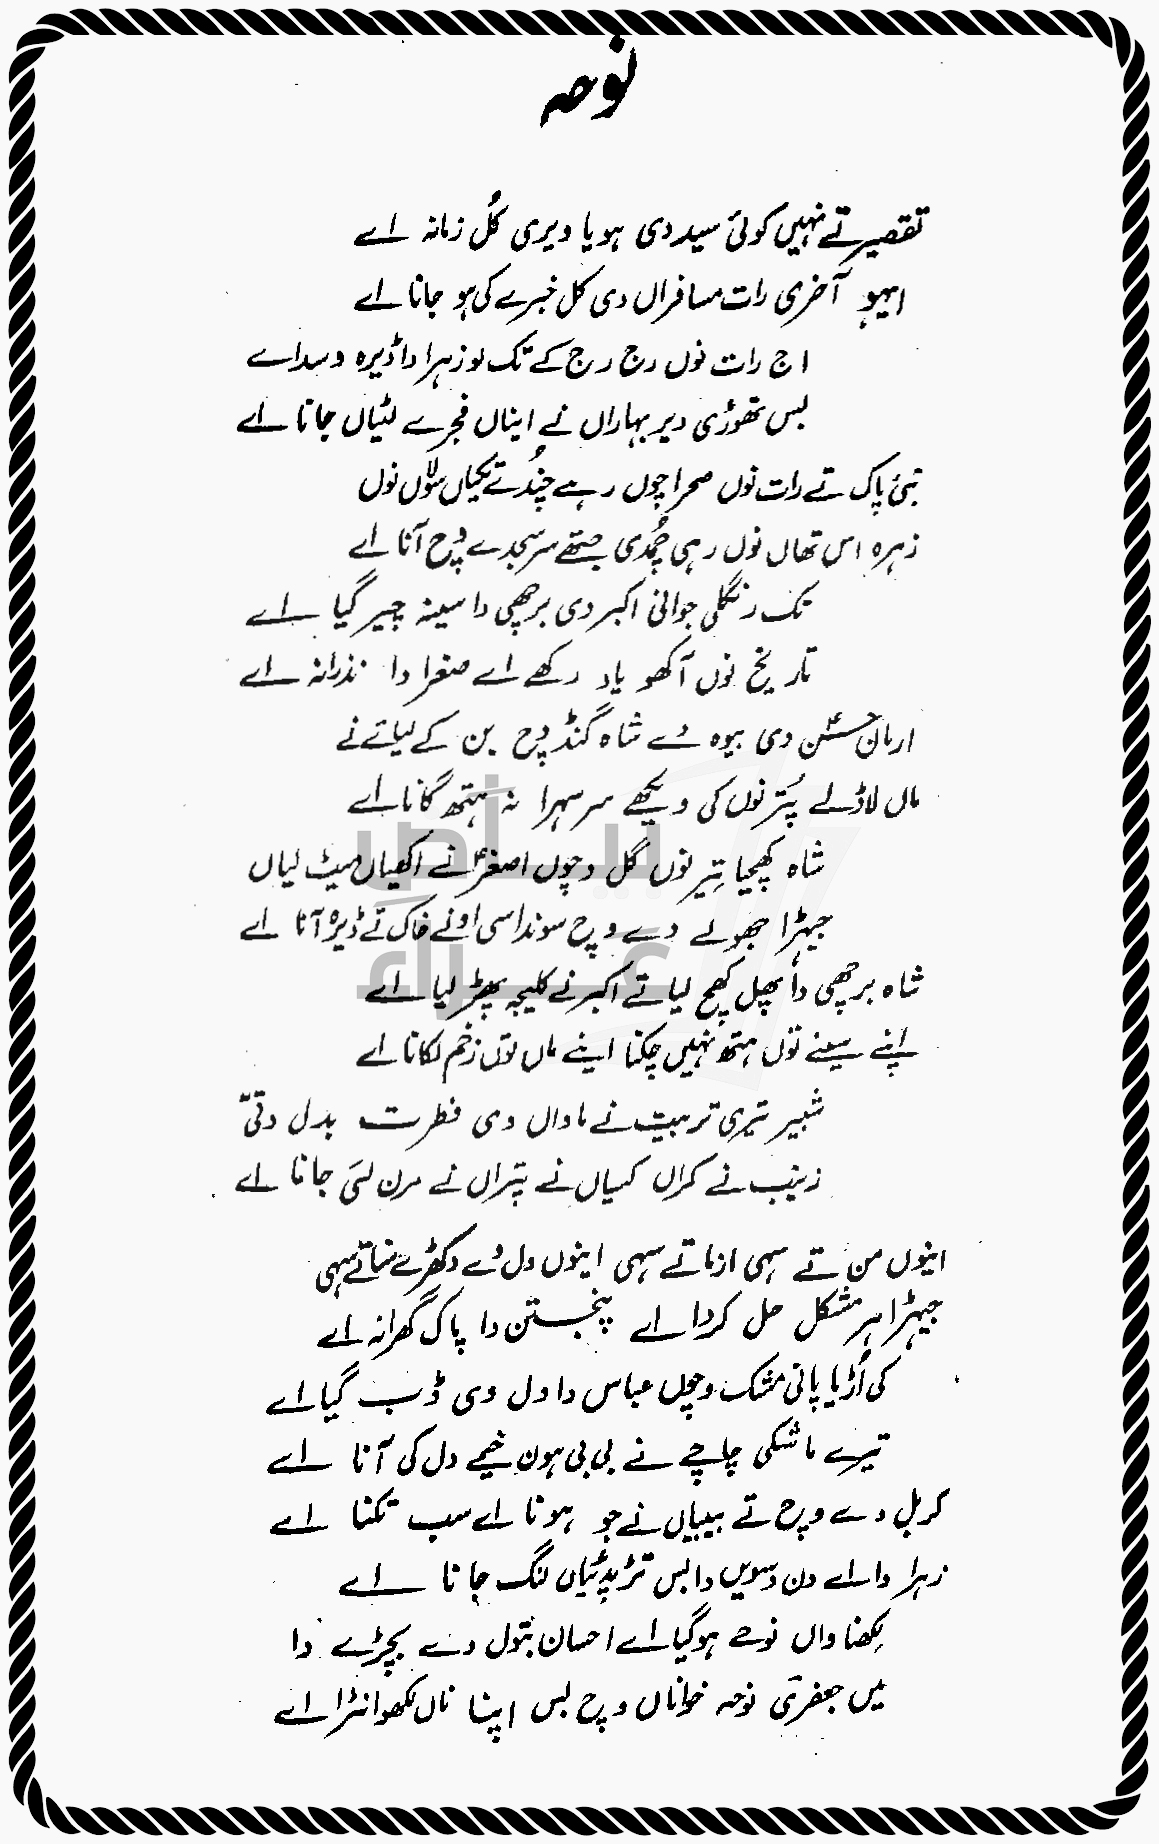 نوحہ
تقصیر تے نہیں کوئی سید دی ہویا ویری کُل زمانہ اے
ایہو آخری رات مسافراں دی کل خبرے کی ہو جانا اے
اج رات نوں رج رج کے تک لو زہرا دا ڈیرہ وسدا اے
بس تھوڑی دیر بہاراں نے ایناں فجرے لٹیاں جانا اے
نبیؐ پاک تے رات نوں صحرا چوں رہے چُندے تکیاں سُولاں نوں
زہرہ اس تھاں نوں رہی چُمدی جتھے سر سجدے وِچ آنا اے
تک رنگلی جوانی اکبر دی برچھی دا سینہ چیر گیا اے
تاریخ نوں آکھو یاد رکھے اے صغرا دا نذرانہ اے
ارمان حسنؑ دی بیوہ دے شاہ گنڈ وِچ بن کے لیاتے نے
ماں لاڈلے پُتر نوں کی ویکھے سر سہرا نہ ہتھ گانا اے
شاہ کھچیا تیر نوں گل وچوں اصغرؑ نے اکھیاں میٹ لیاں
جیہڑا جھولے دے وچ سوندا سی اونے خاک تے ڈیرہ آنا اے
شاہ برچھی دا پھل کھچ لیا تے اکبر نے کلیجہ پھڑ لیا اے
اپنے سینے توں ہتھ نہیں چکنا اینے ماں توں زخم لکانا اے
شبیر تیری تربیت نے ماواں دی فطرت بدل دتی
زینب نے کراں کمیاں نے پتراں نے مرن لئی جانا اے
اینوں من تے سہی ازما تے سہی اینوں دل دے دکھڑے سنا تے سہی
جیہڑا ہر مشکل حل کردا اے پنجتن دا پاک گھرانہ اے
کی اُڑیا پانی مشک وچوں عباس دا دل وی ڈب گیا اے
تیرے ماشکی چاچے نے بی بی ہون خیمے دل کی آنا اے
کربل دے وچ تے بیبیاں نے جو ہونا اے سب تکنا اے
زہرا دا اے دن دسویں دا بس تڑپدئیاں لنگ جانا اے
لکھنا واں نوحے ہو گیا اے احسان بتول دے بچڑے دا
میں جعفری نوحہ خواناں وچ بس اپنا ناں لکھوانڑا اے
بیاض عزاء